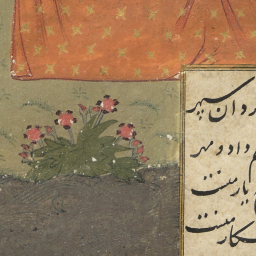 ردان سپهر
داد و مهر
یار منست
کار منست